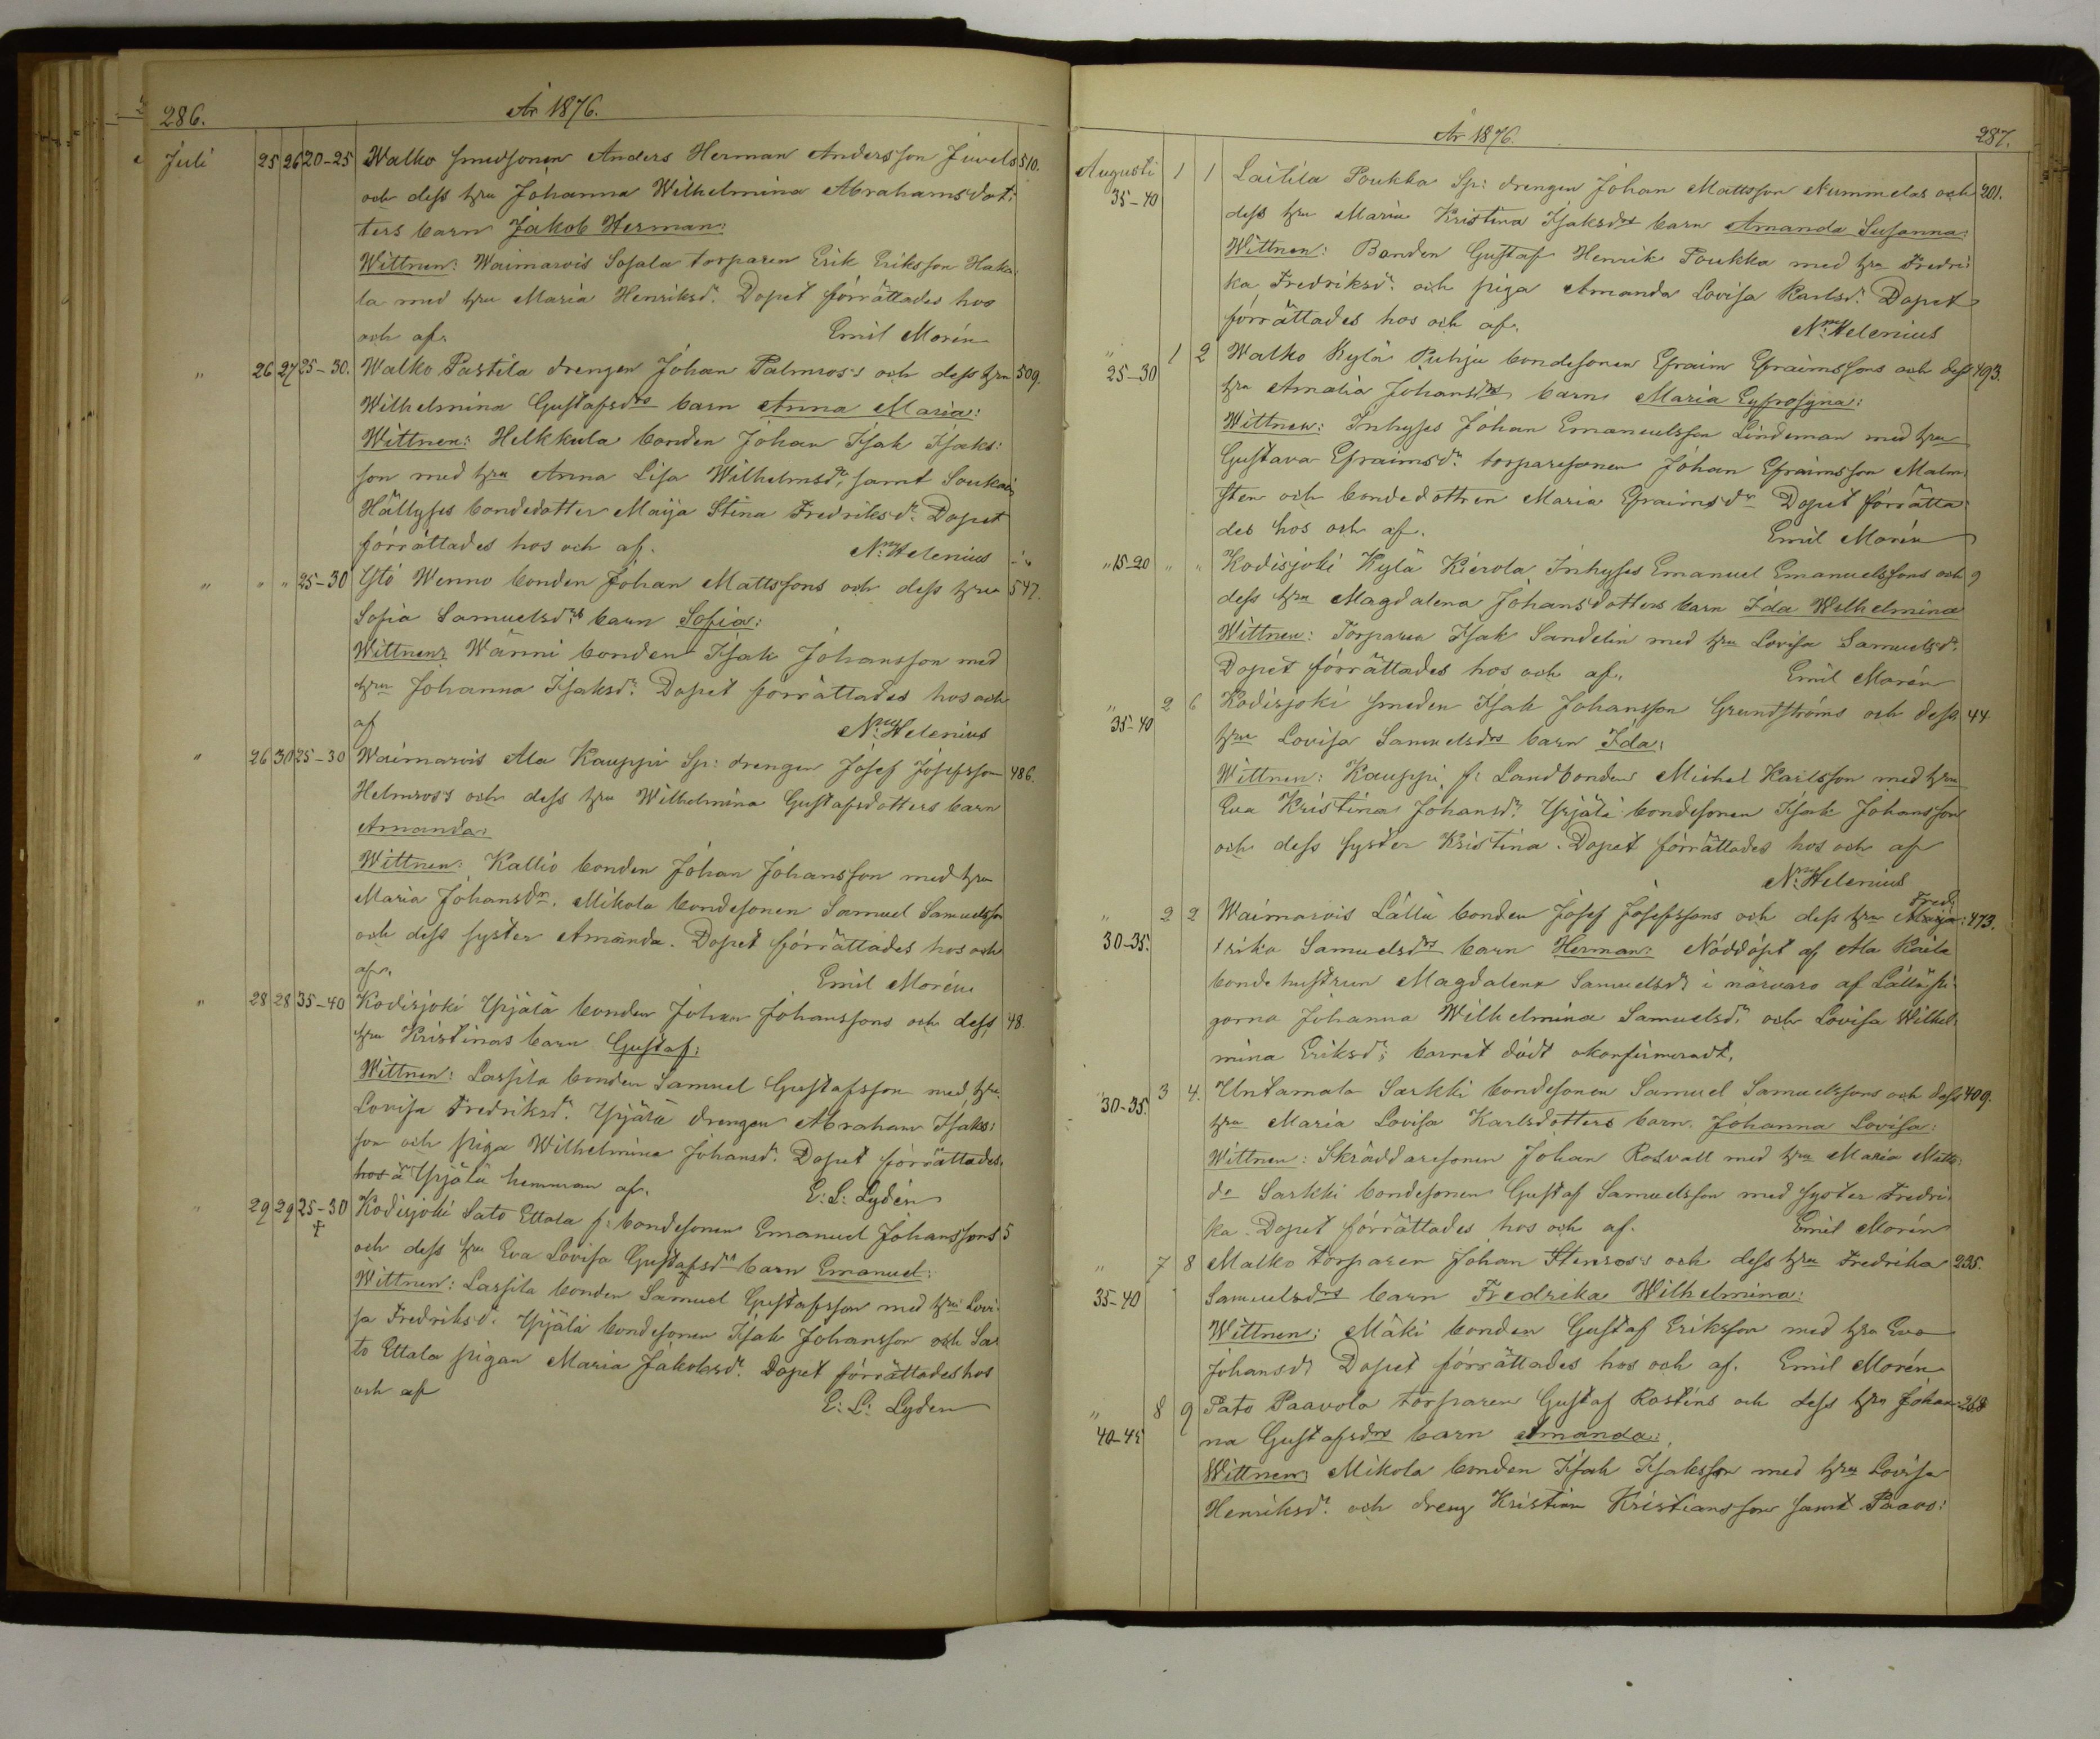 286.
År 1876.
Juli 25 26 20-25 Walko smedsonen Anders Herman Andersson Juvels 510.
och dess hru Johanna Wilhelmina Abrahamsdot:
ters barn Jakob Herman:
Wittnen: Waimarois Sosala torparen Erik Eriksson Haka:
la med hru Maria Henriksdr. Dopet förrättades hos
och af. Emil Morén
" 26 27 25-30. Walko Pastila drengen Johan Palmros's och dess hru 509.
Wilhelmina Gustafsdrs barn Anna Maria:
Wittnen: Helkkula bonden Johan Isak Isaks:
son med hru Anna Lisa Wilhelmsdr, samt
Hällyses bondedotter Maija Stina Fredriksdr. Dopet
förrättades hos och af. Helenius
" " " 25-30 Ytö Wenno bonden Johan Mattssons och dess hru 547.
Sofia Samuelsdrs barn Sofia:
Wittnen: Wänni bonden Isak Johansson med
hru Johanna Isaksdr. Dopet förrättades hos och
af Helenius
" 26 30 25-30 Waimarois Ala Kauppi Sp: drengen Josef Josefsson 486.
Helmros's och dess hru Wilhelmina Gustafsdotters barn
Amanda:
Wittnen: Kallio bonden Johan Johansson med hru
Maria Johansdr. Mikola bondesonen Samuel Samuelsson
och dess syster Amanda. Dopet förrättades hos och
af. Emil Morén
" 28 28 35-40 Kodisjoki Yrjälä bonden Johan Johanssons och dess 48.
hru Kristinas barn Gustaf:
Wittnen: Lassila bonden Samuel Gustafsson med hru
Lovisa Fredriksdr. Yrjälä drengen Abraham Isaks:
son och piga Wilhelmina Johansdr. Dopet förrättades
hos å Yrjälä hemman af. E: L: Lydén
" 29 29 25-30 Kodisjoki Sato Ettala f: bondesonen Emanuel Johanssons 5
†
och dess hru Eva Lovisa Gustafsdrs barn Emanuel:
Wittnen: Lassila bonden Samuel Gustafsson med hru Lovi:
sa Fredriksdr. Yrjälä bondesonen Isak Johansson och Sa:
to Ettala pigan Maria Jakobsdr. Dopet förrättades hos
och af E: L: Lyden
År 1876.
287.
Augusti 1 1 Laitila Poukka Sp: drengen Johan Mattsson Nummelas och 201.
35-40
dess hru Maria Kristina Isaksdrs barn Amanda Susanna:
Wittnen: Bonden Gustaf Henrik Poukka med hru Fredri:
ka Fredriksdr. och piga Amanda Lovisa Karlsdr. Dopet
förrättades hos och af. Helenius
" 1 2 Walko Kylä Puhju bondesonen Efraim Efraimssons och dess 493.
25-30
hru Amalia Johansdrs barn Maria Eyfrosyna:
Wittnen: Inhyses Johan Emanuelsson Lindeman med hru
Gustava Efraimsdr. torparesonen Johan Efraimsson Malm:
sten och bondedottren Maria Efraimsdr Dopet förrätta:
des hos och af. Emil Morén
" 15-20 " " Kodisjoki Kylä Kierola Inhyses Emanuel Emanuelssons och 9
dess hru Magdalena Johansdotters barn Ida Wilhelmina
Wittnen: Torparen Isak Sandelin med hru Lovisa Samuelsdr.
Dopet förrättades hos och af. Emil Morén
" 2 6 Kodisjoki smeden Isak Johansson Grundströms och dess 44.
35-40
hru Lovisa Samuelsdrs barn Ida:
Wittnen: Kauppi f: Landbonden Michel Karlsson med hru
Eva Kristina Johansdr. Yrjälä bondesonen Isak Johansson
och dess syster Kristina. Dopet förrättades hos och af
Helenius
" 2 2 Waimarois Lällä bonden Josef Josefssons och dess hru Maija Fred: 473.
30-35.
rika Samuelsdrs barn Herman: Nöddöpt af Ala Kaila
bondehustrun Magdalena Samuelsdr i närvaro af Lällä pi:
gorna Johanna Wilhelmina Samuelsdr. och Lovisa Wilhel:
mina Eriksdr; barnet dödt okonfirmeradt.
" 3 4. Untamala Sarkki bondesonen Samuel Samuelssons och dess 409.
30-35.
hru Maria Lovisa Karlsdotters barn. Johanna Lovisa:
Wittnen: Skräddaresonen Johan Rosvall med hru Maria Matts:
dr Sarkki bondesonen Gustaf Samuelsson med syster Fredri:
ka. Dopet förrättades hos och af. Emil Morén
" 7 8 Malko torparen Johan Stenros's och dess hru Fredrika 235.
35-40
Samuelsdrs barn Fredrika Wilhelmina:
Wittnen: Mäki bonden Gustaf Eriksson med hru Eva
Johansdr Dopet förrättades hos och af. Emil Morén
" 8 9 Pato Paavola torparen Gustaf Rosténs och dess hru Johan: 268
40-45
na Gustafsdrs barn Amanda:
Wittnen: Mikola bonden Isak Isaksson med hru Lovisa
Henriksdr. och dreng Kristian Kristiansson samt Paavo: